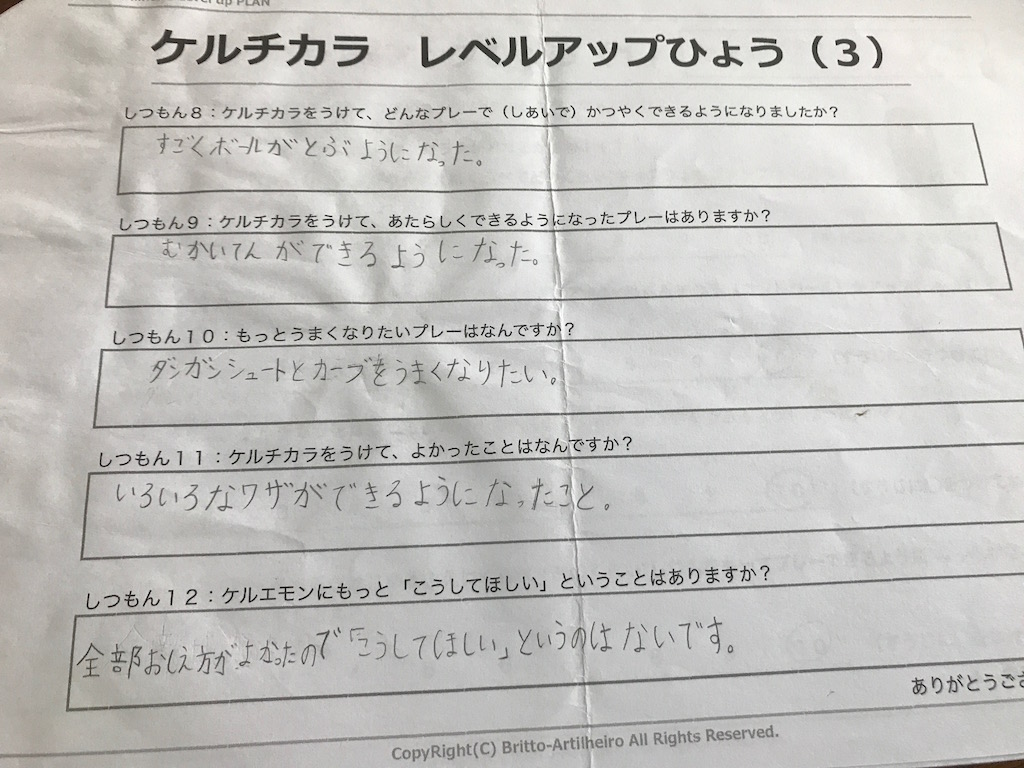 up PLAN
ケルチカラ　レベルアップひょう（３）
しつもん８：ケルチカラをうけて、どんなプレーで（しあいで）かつやくできるようになりましたか？
すごくボールがとぶようになった。
しつもん９：ケルチカラをうけて、あたらしくできるようになったプレーはありますか？
むかいてんができるようになった。
しつもん１０：もっとうまくなりたいプレーはなんですか？
ダンガンシュートとカーブをうまくなりたい。
しつもん１１：ケルチカラをうけて、よかったことはなんですか？
いろいろなワザができるようになったこと。
しつもん１２：ケルエモンにもっと「こうしてほしい」ということはありますか？
全部おしえ方がよかったので「こうしてほしい」というのはないです。
ありがとうござ
CopyRight(C) Britto-Artilheiro All Rights Reserved.